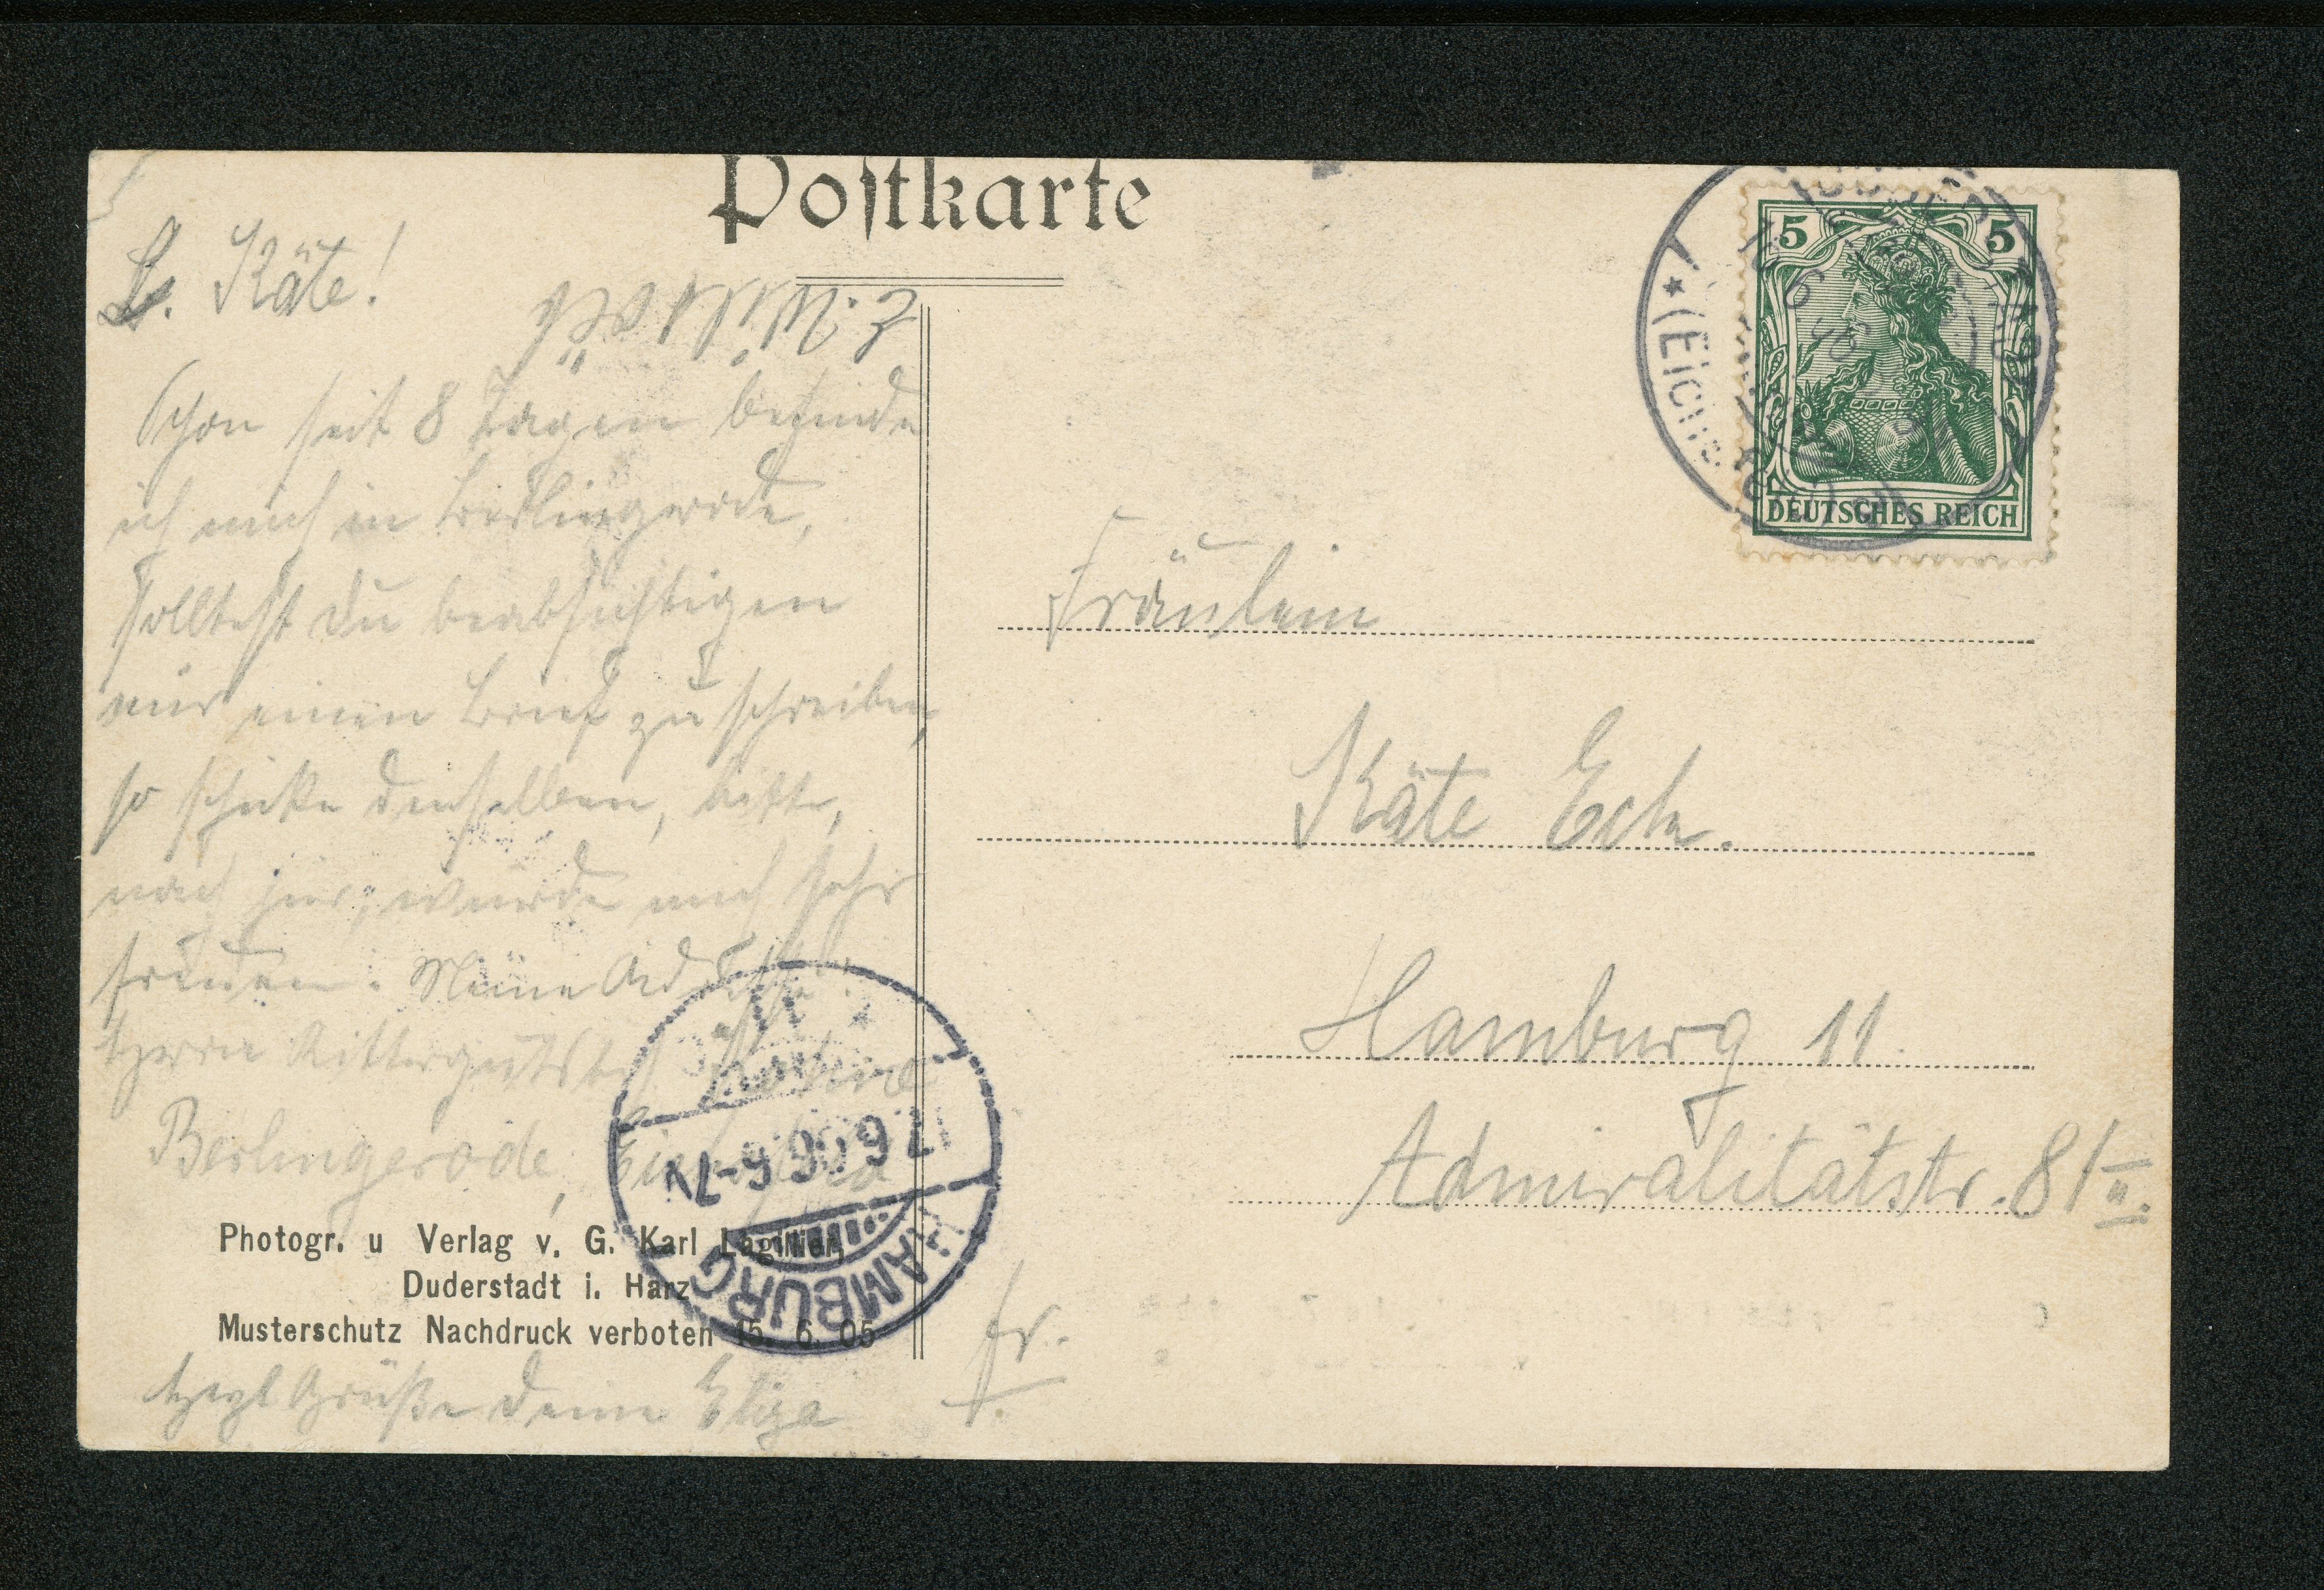 Postkarte
L. Käte!
Schon seit 8 Tagen befinde
ich mich in Berlingerode,
solltest du beabsichtigen
mir einen Brief zu schreiben,
so schicke denselben, bitte,
nach hier, würde mich sehr
freuen. Meine Adresse:
Herrn Rittergutsbes.
Berlingerode,
Photogr. u Verlag v. G. Karl
Duderstadt i. Harz
Musterschutz Nachdruck verboten 15. 6. 05
Herzl Grüße deine Eliza
fr.
5 5
DEUTSCHES REICH
★ (Eichs
Fräulein
Käte Eck.
Hamburg 11.
Admiralitätstr. 81 II.
HAMBURG